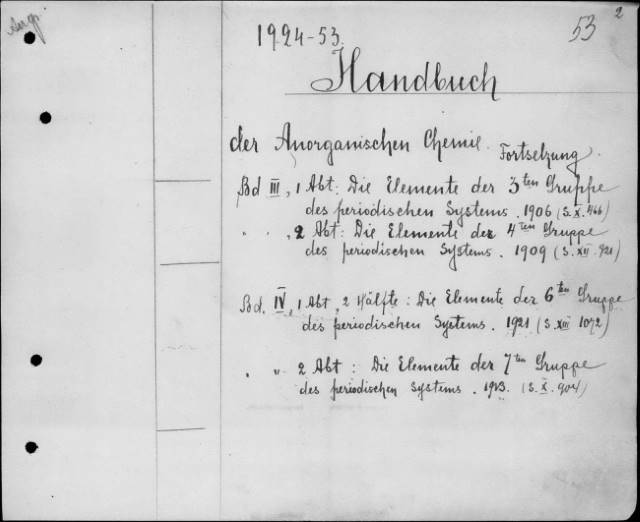 2
53
1924-53.
Handbuch
der Anorganischen Chemie. Fortsetzung.
Bd III, 1 Abt: Die Elemente der 3ten Gruppe
des periodischen Systems. 1906 (S. X. 466)
" " , 2 Abt: Die Elemente der 4ten Gruppe
des periodischen Systems. 1909 (S. XII. 921)
Bd. IV, 1 Abt, 2 Hälfte: Die Elemente der 6ten Gruppe
des periodischen Systems. 1921 (S. XIII 1072)
" " 2 Abt: Die Elemente der 7ten Gruppe
des periodischen Systems. 1913. (S. X. 904)